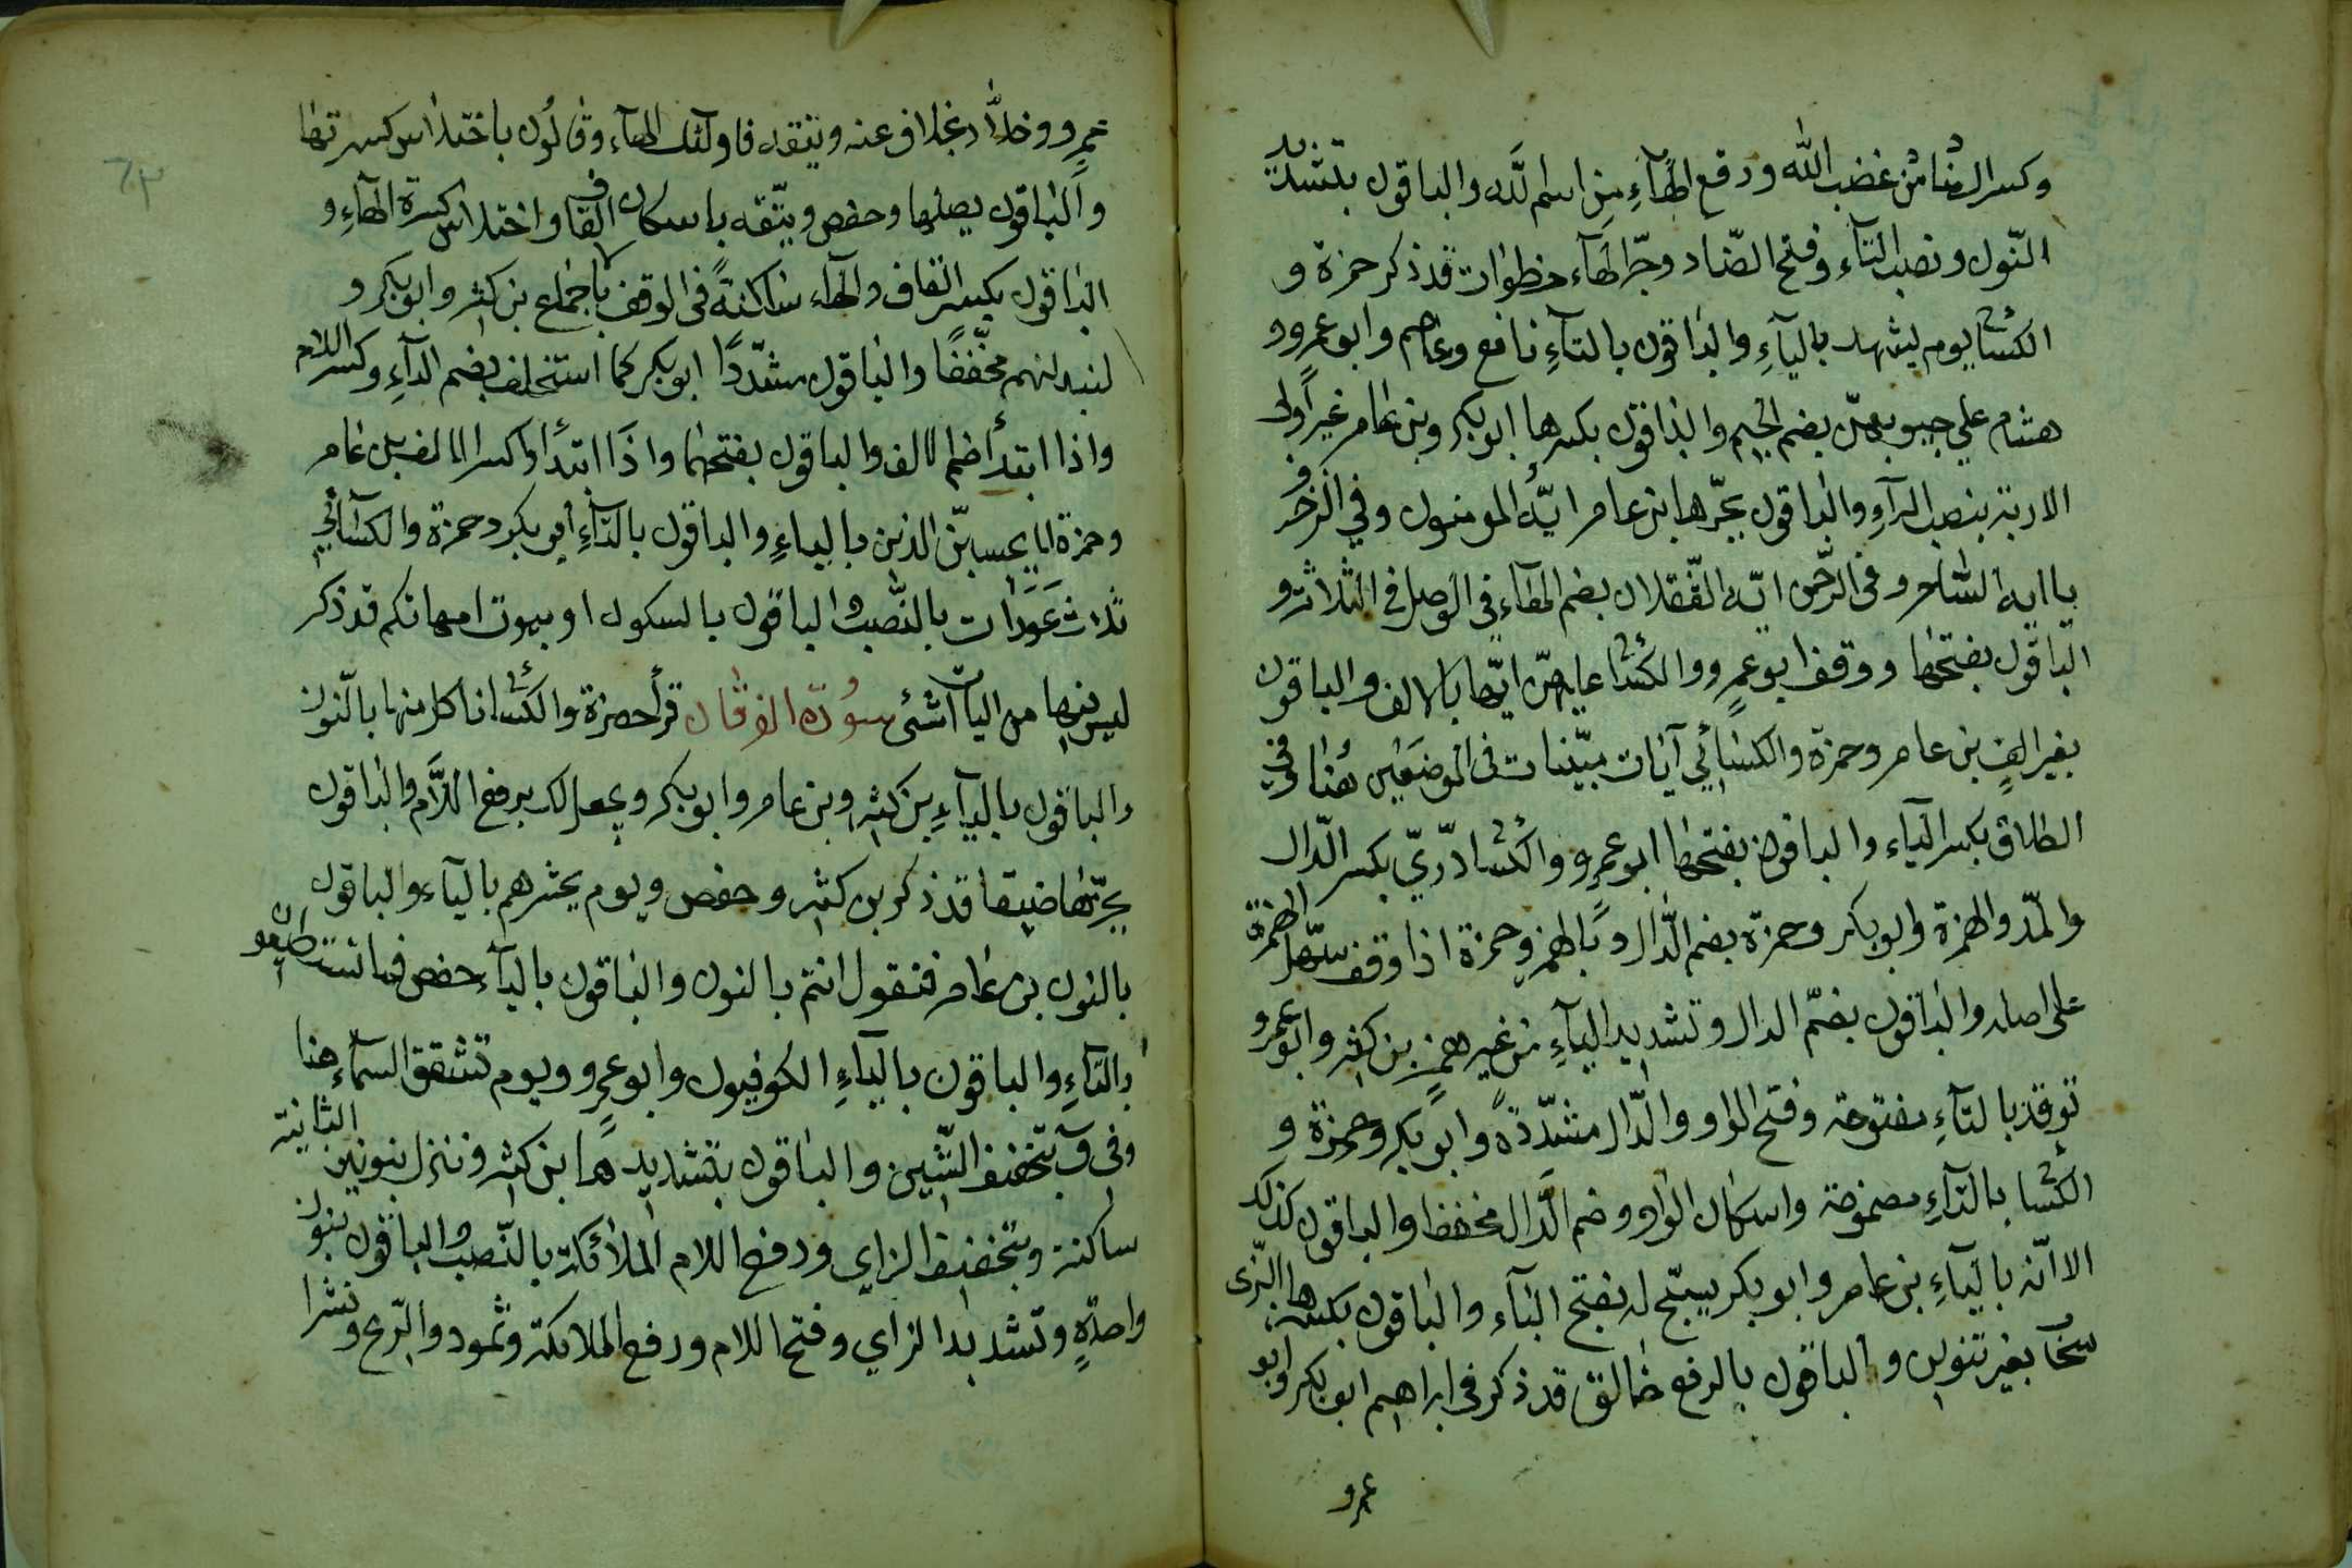 وكسر الضاد من غضب الله ورفع الهآءِ من اسم اللّه والباقون بتشديد
النّون ونصب التآء وفتح الضّاد وجرّ الهآء خطوات قد ذكر حمزة و
الكسائ يوم يشهد باليآءِ والباقون بالتآءِ نافع وعاصم وابو عمرو و
هشام علي جيوبهنّ بضم الجيم والباقون بكسرها ابو بكر وبن عامر غير اولى
الاربة بنصب الرآءِ والباقون بجرّها ابن عامر ايّه المومنون وفي الزخرف
يا ايه الساحر وفى الرّحمن ايّه الثّقلان بضم الهآء في الوصل في الثلاثة و
الباقون بفتحها ووقف ابو عمرو والكسائ عليهنّ ايّها بالالف والباقون
بغير الفٍ بن عامر وحمزة والكسائي آيات مبيّنات فى الموضعين هُنا وفي
الطلاق بكسر اليآء والباقون بفتحها ابو عمرو والكسائ درّيّ بكسر الدّال
والمدّ والهمزة وابو بكر وحمزة بضم الدّال وبالهمز وحمزة اذا وقف سهّل الهمزة
على اصله والباقون بضمّ الدال وتشديد اليآءِ من غير همزٍ بن كثير وابو عمرو
توقد بالتآءِ مفتوحة وفتح الواو والدّال مشدّدةً وابو بكر وحمزة و
الكسائ بالتآءِ مضمومة واسكان الواو وضم الدّال مخففا والباقون كذلك
الا انّه باليآءِ بن عامر وابو بكر يسبّح له بفتح البآء والباقون بكسرها البزّى
سحابُ بغير تنوين والباقون بالرفع خالق قد ذكر فى ابراهيم ابو بكر وابو
عمرو
عمرٍو وخلاّد بخلاف عنه ويتقه فاولئك الهآء وقالون باختلاس كسرتها
والباقون يصلها وحفص ويتّقه باسكان القاف واختلاس كسرة الهآءِ و
الباقون بكسر القاف والهاء ساكنةً فى الوقف باجماع بن كثير وابو بكر و
ليبدلنهم مخفّفًا والباقون مشدّدًا ابو بكر كما استخلف بضم التآءِ وكسر اللام
واذا ابتدأ ضم الالف والباقون بفتحهما واذا ابتدأوا كسر الالف بن عامر
وحمزة لا يحسبنّ الذين باليآءِ والباقون بالتآءِ ابو بكر وحمزة والكسآئي
ثلاث عَوَرات بالنّصب والباقون بالسكون او بيوت امهاتكم قد ذكر
ليس فيها من اليآات شئ سُورة الفرقان قرأ حمزة والكسائ ناكل منها بالنّون
والباقون باليآءِ بن كثير وبن عامر وابو بكر ويجعل لك برفع اللاّم والباقون
بجزمها ضيقا قد ذكر بن كثير وحفص ويوم يحشرهم باليآء والباقون
بالنون بن عامر فنقول انتم بالنون والباقون باليآء حفص فما تستطيعون
بالتآءِ والباقون باليآءِ الكوفيون وابو عمرو ويوم تشقق السمآء هنا
وفى ق بتخفيف الشّين والباقون بتشديدها بن كثير وننزل بنونين الثانية
ساكنة وبتخفيف الزاي ورفع اللام الملآئكة بالنّصب والباقون بنون
واحدّةٍ وتشديد الزاي وفتح اللام ورفع الملائكة وثمود والرّيح ونشرا